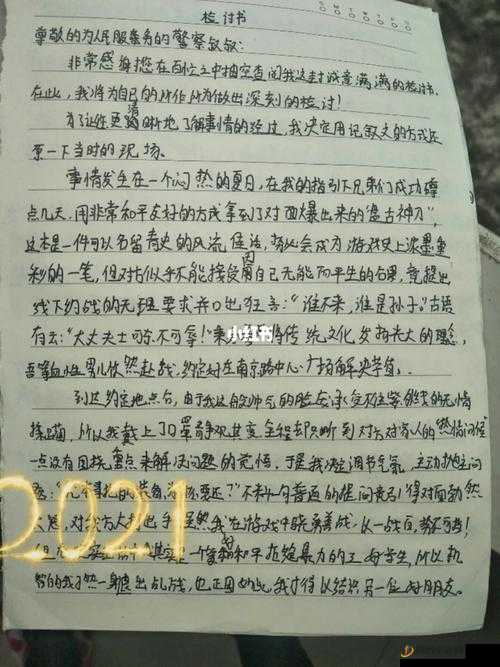 检讨书
尊敬的为人民服务的警察叔叔：
非常感谢您在百忙之中抽空查阅我这封诚意满满的检讨书，
在此，我将为自己的所作所为做出深刻的检讨！
为了让您更清晰地了解事情的经过，我决定用记叙文的方式还
原一下当时的现场。
事情发生在一个闷热的夏日，在我的指引下兄弟们成功蹲
点几天，用非常和平友好的方式拿到了对面爆出来的“盘古神刀”，
这本是一件可以名留青史的风流佳话，势必会成为游戏史上浓墨重
彩的一笔，但对方似乎不能接受因自己无能而产生的后果，竟提出
线下约战的无理要求并口出狂言：“谁不来，谁是孙子”古语
有云：“大丈夫士可杀不可辱！”统文化，发扬光大的理念，
吾等血性男儿欣然赴战，约定好在南京路中心广场解决争端。
到达约定地点后，由于我这般帅气的脸庞承受不住紫外线的无情
摧踊，所以我戴上了口罩静观其变，全程却只听到对方对家人的“热情问候”
一点没有围绕重点来解决问题的觉悟，于是我决定调节气氛，主动抛出问
题：不来
大怒，对我方大打出手，虽然我在游戏中骁勇善战，以一战百，势不可挡！
一个和平拒绝暴力的三好学生，所以机
智的我孑然一身退出乱战，也正因如此我才得以结识另一位好朋友。
小红书
2021